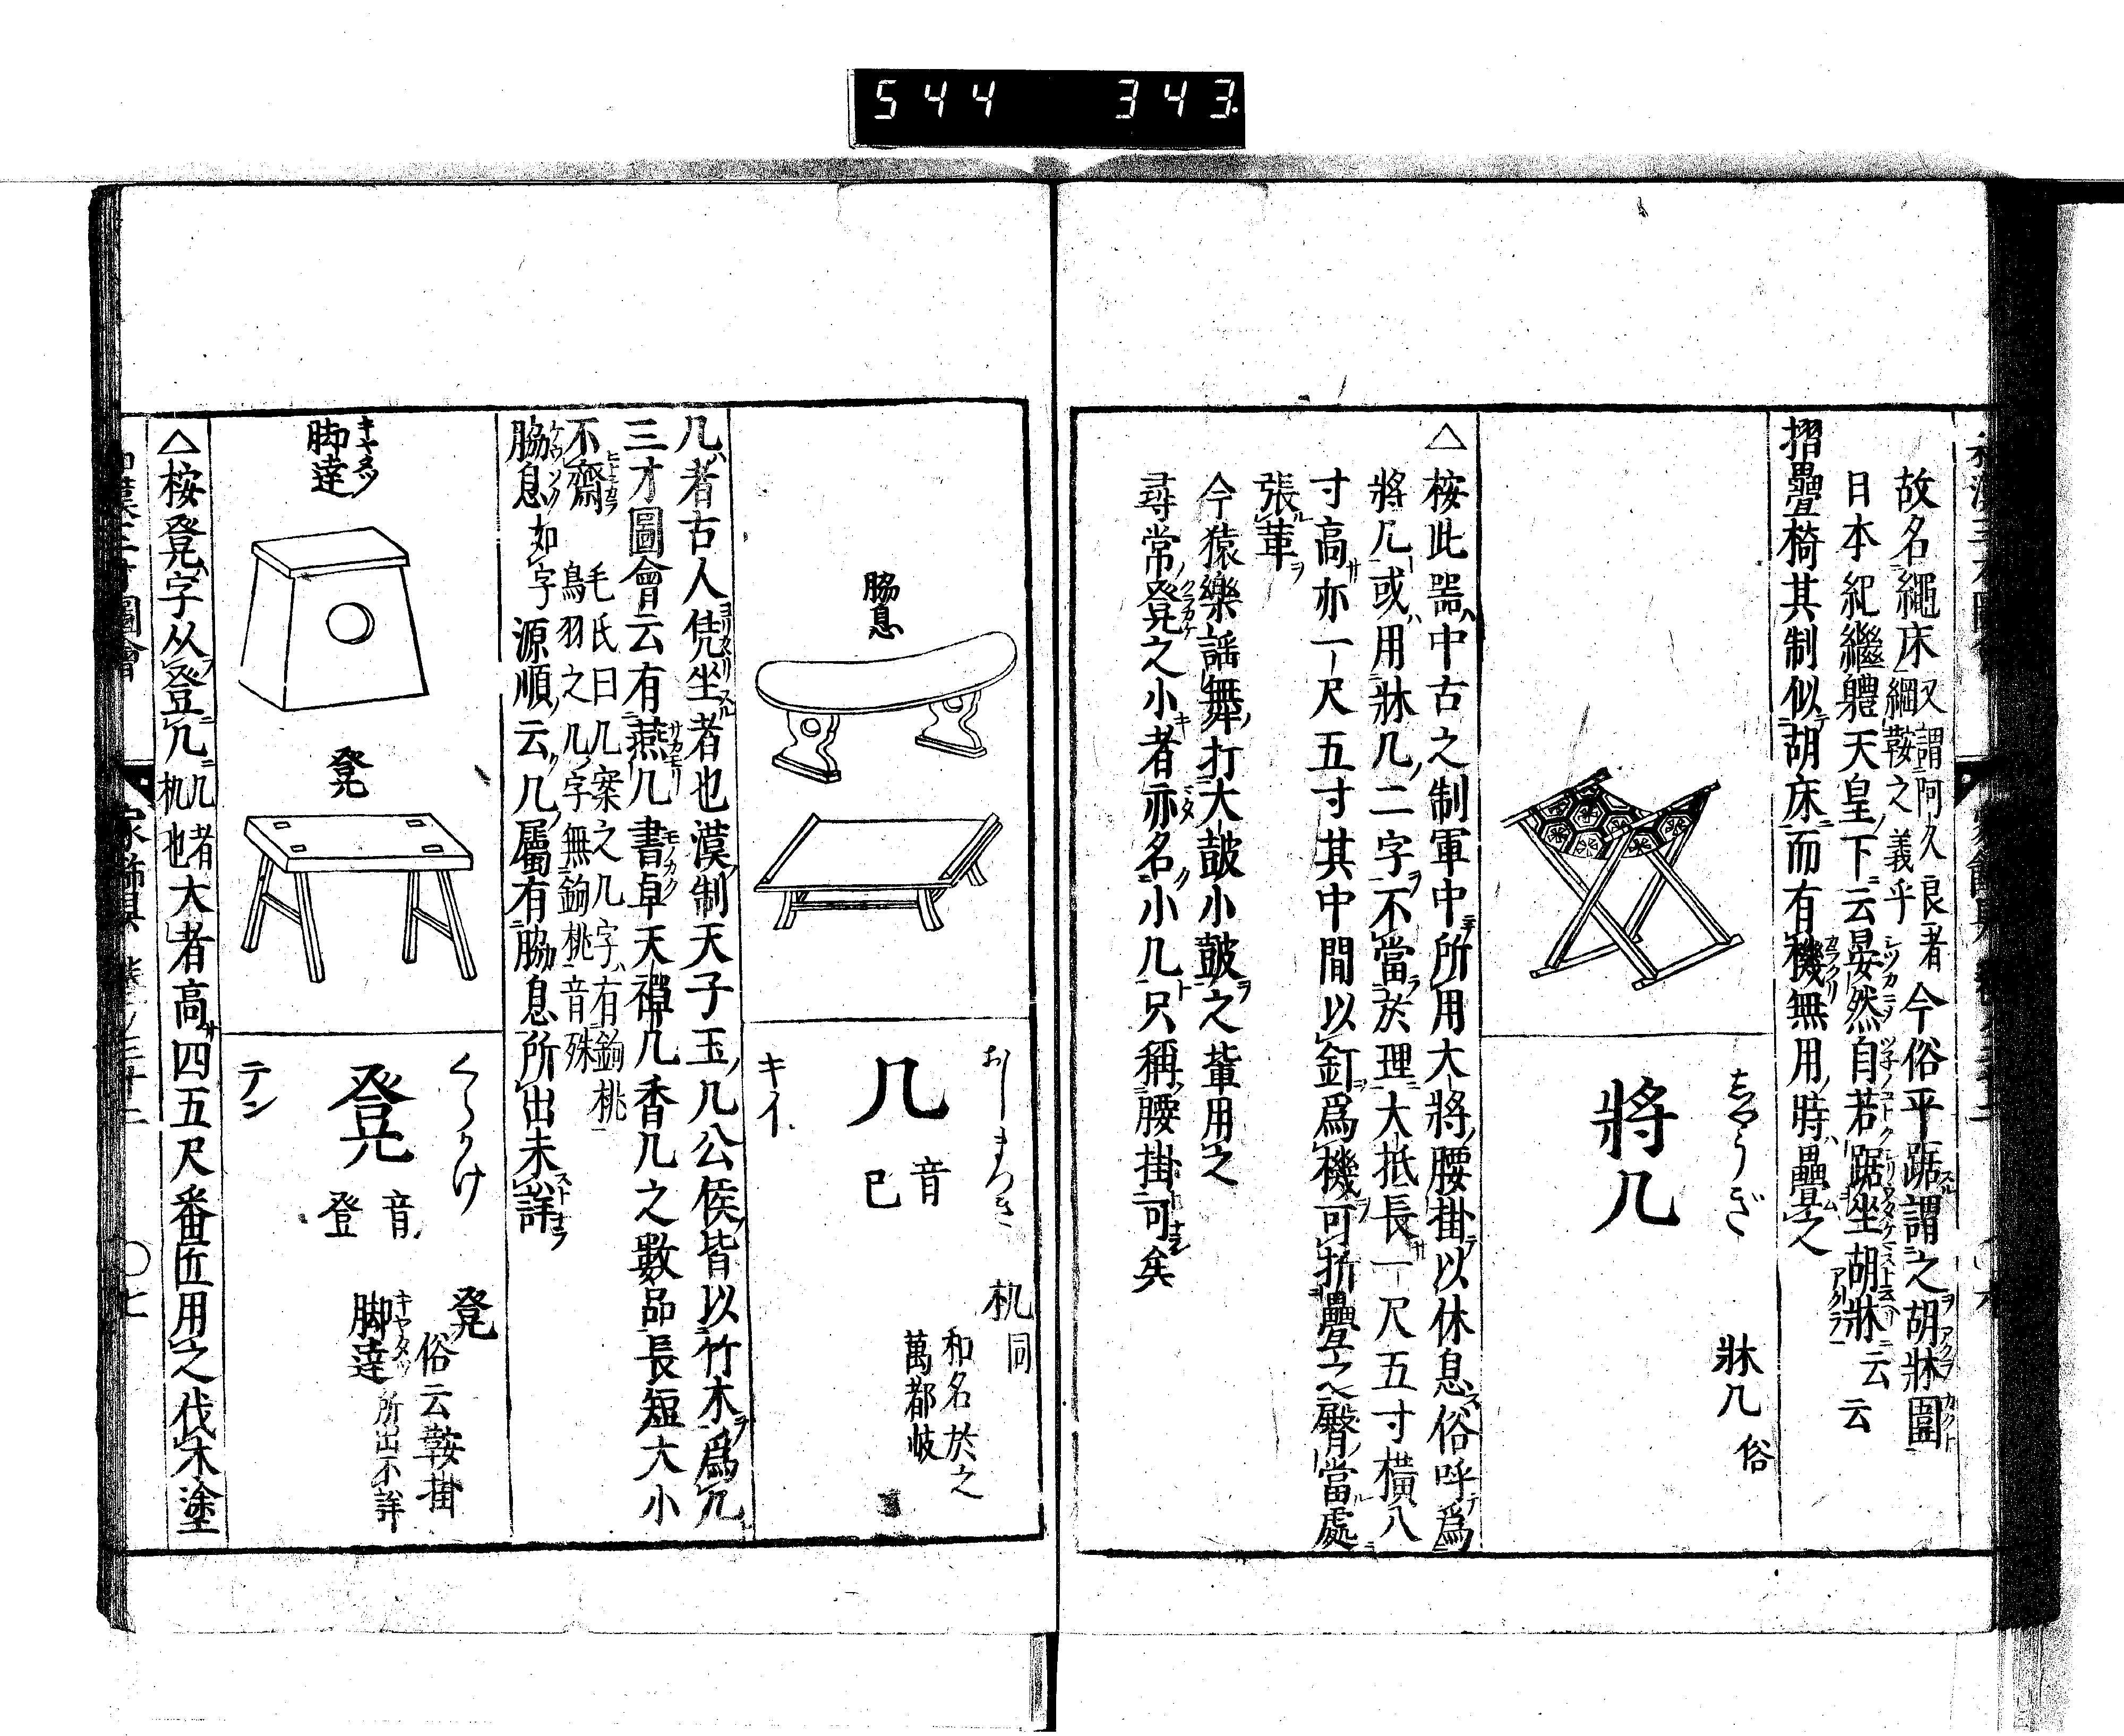 544 343.
故名繩床又謂阿久良者今俗平踞謂之胡牀圖
綱鞍之義乎
日本紀繼體天皇下云晏然自若踞坐胡牀云云
摺疊椅其制似胡床而有機無用時疊之
しやうぎ
將几
牀几 俗
△按此器中古之制軍中所用大將腰掛以休息俗呼爲
將几或用牀几二字不當於理大抵長一尺五寸橫八
寸高亦一尺五寸其中間以釘爲機可折疊之臀當處
張革
今猿樂謡舞打大皷小皷之輩用之
尋常凳之小者亦名小几只稱腰掛可矣
脇息
おしまつき
几 音 已
キイ
机 同
和名於之
萬都岐
几者古人凭坐者也漢制天子玉几公侯皆以竹木爲几
三才圖會云有燕几書卓天禪几香几之數品長短大小
不齋 毛氏曰几案之几字有鉤桃
鳥羽之几字無鉤桃音殊
脇息 如字 源順云几屬有脇息所出未詳
脚達 キヤタツ
凳
くらかけ
凳 音 登
テン
凳 俗云鞍掛
脚達 キヤタツ 所出不詳
△按凳字从登几 几者机也 大者高四五尺番匠用之伐木塗